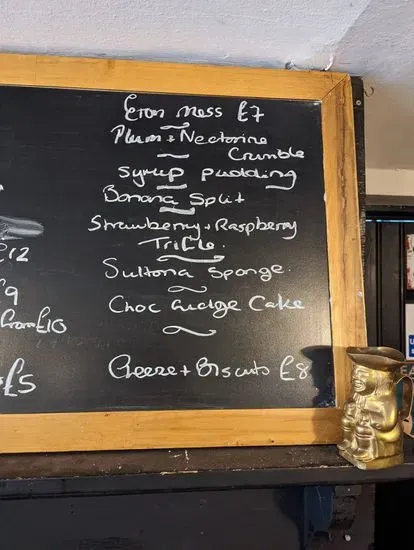 Eton Mess £7
Plum + Nectarine
Crumble
Syrup pudding
Banana Split
Strawberry + Raspberry
Trifle.
Sultana Sponge.
Choc Fudge Cake
Cheese + Biscuits £8
£12
£9
from £10
£5